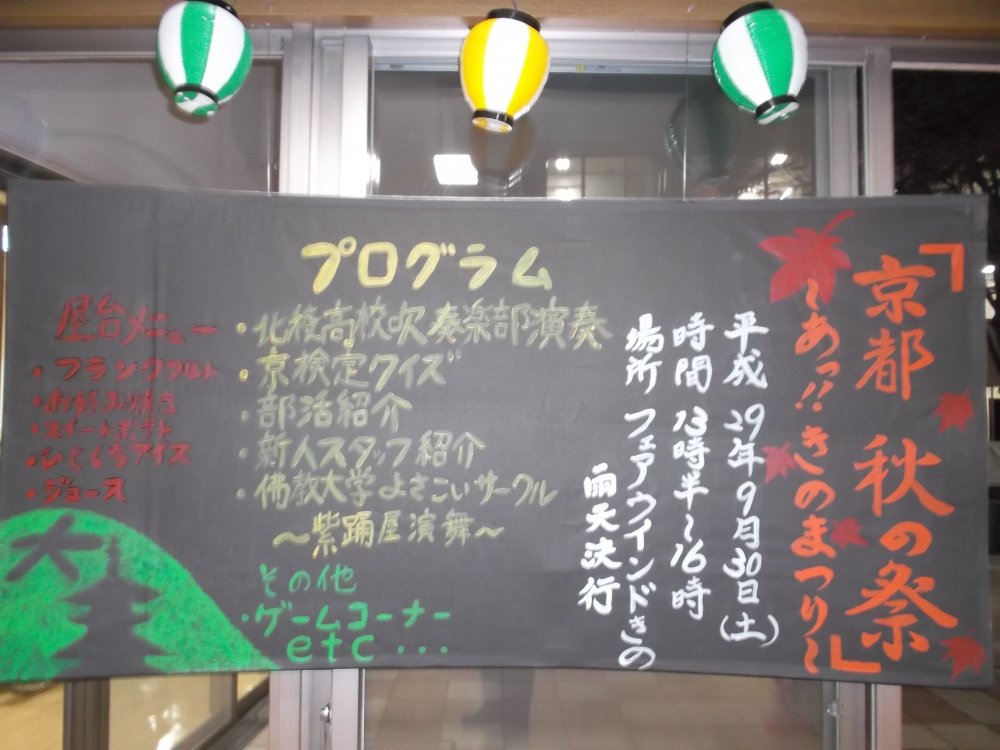 「京都 秋の祭」
～あっ!!きのまつり～
平成29年9月30日(土)
時間 13時半～16時
場所 フェアウインドきの
雨天決行
プログラム
・北稜高校吹奏楽部演奏
・京検定クイズ
・部活紹介
・新人スタッフ紹介
・佛教大学よさこいサークル
～紫踊屋演舞～
その他
・ゲームコーナー
etc...
屋台メニュー
・フランクフルト
・お好み焼き
・スイートポテト
・ひとくちアイス
・ジュース
大